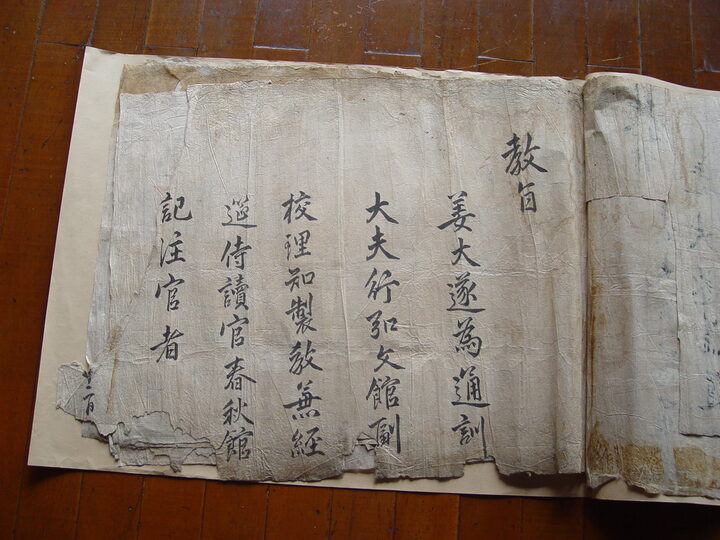 教旨
姜大遂為通訓
大夫行弘文館副
校理知製教兼經
筵侍讀官春秋館
記注官者